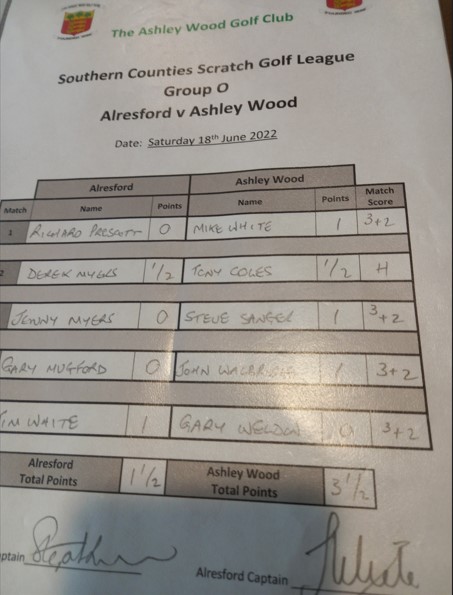 The Ashley Wood Golf Club
Southern Counties Scratch Golf League
Group O
Alresford v Ashley Wood
Date: Saturday 18th June 2022
Alresford Ashley Wood
Match Name Points Name Points Match Score
1 RICHARD PRESCOTT 0 MIKE WHITE 1 3+2
2 DEREK MYERS 1/2 TONY COLES 1/2 H
JENNY MYERS 0 STEVE 1 3+2
GARY MUGFORD 0 JOHN 1 3+2
TIM WHITE 1 GARY WELDON 0 3+2
Alresford Total Points 1 1/2 Ashley Wood Total Points 3 1/2
ptain Alresford Captain